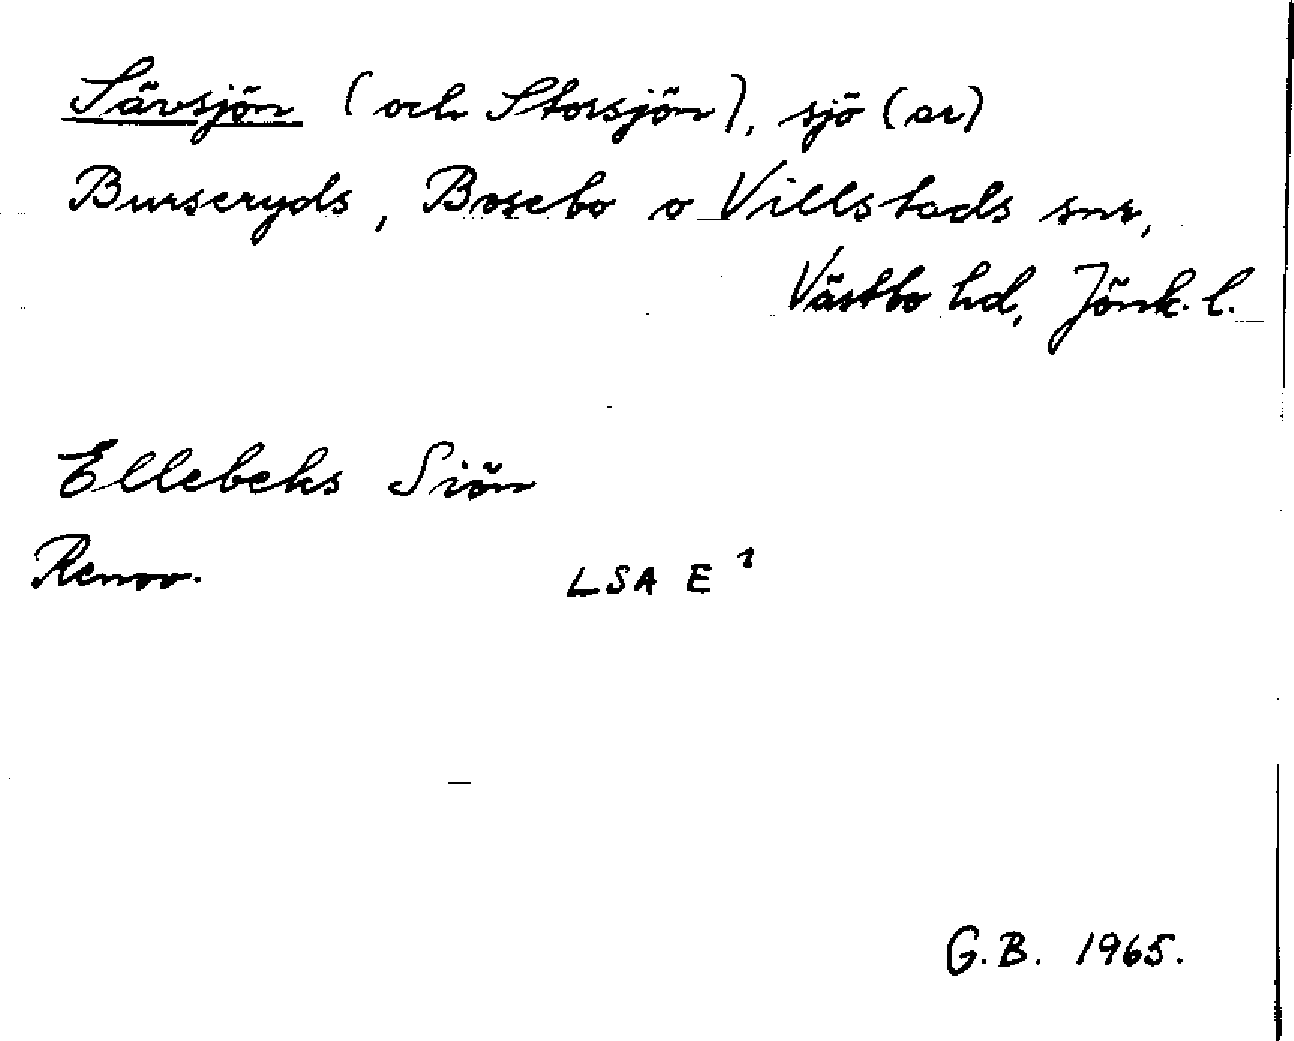 Sävsjön (och Storsjön), sjö (ar)
Burseryds, Bosebo o Villstads snr,
Västbo hd, Jönk. l.
Ellebeks Siön
Renov. LSA E 1
G.B. 1965.